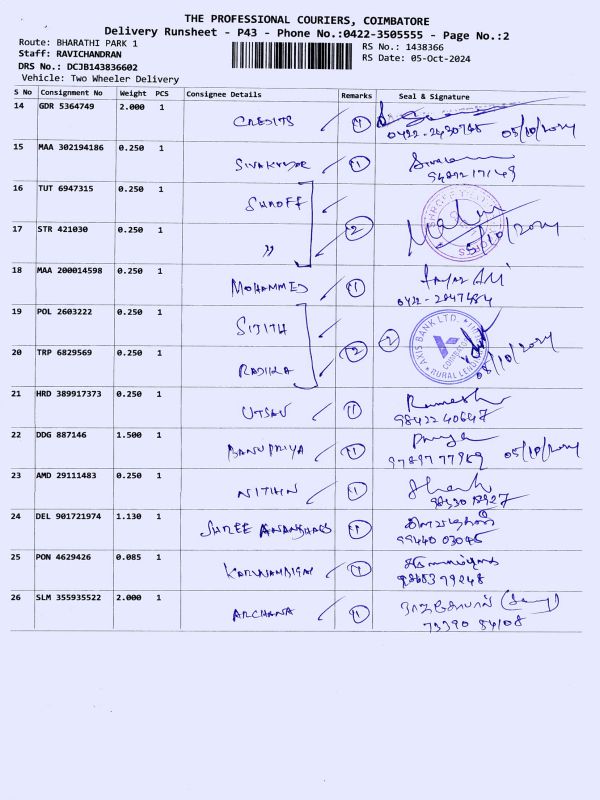 THE PROFESSIONAL COURIERS, COIMBATORE
Delivery Runsheet - P43 - Phone No.:0422-3505555 - Page No.:2
Route: BHARATHI PARK 1
RS No.: 1438366
Staff: RAVICHANDRAN
RS Date: 05-Oct-2024
DRS No.: DCJB143836602
Vehicle: Two Wheeler Delivery
S No Consignment No Weight PCS Consignee Details Remarks Seal & Signature
14 GDR 5364749 2.000 1
CREDITS 1
0422-2430748 05/10/2024
15 MAA 302194186 0.250 1
SIVAKUMAR 1
16 TUT 6947315 0.250 1
SHROFF
17 STR 421030 0.250 1
" 2
5/10/2024
18 MAA 200014598 0.250 1
MOHAMMED 1
0422-2847484
19 POL 2603222 0.250 1
SIJITH
AXIS BANK LTD.
COIMBATORE
RURAL LENDING
20 TRP 6829569 0.250 1
RADIKA 2 2
05/10/2024
21 HRD 389917373 0.250 1
UTSAV 1 Ramesh
98422 40647
22 DDG 887146 1.500 1
BANUPRIYA 1 Priya
97897 77969 05/10/2024
23 AMD 29111483 0.250 1
NITHIN 1
24 DEL 901721974 1.130 1
SHREE 1
99440 03045
25 PON 4629426 0.085 1
1
98653 79248
26 SLM 355935522 2.000 1
ARCHANA 1
73390 54108